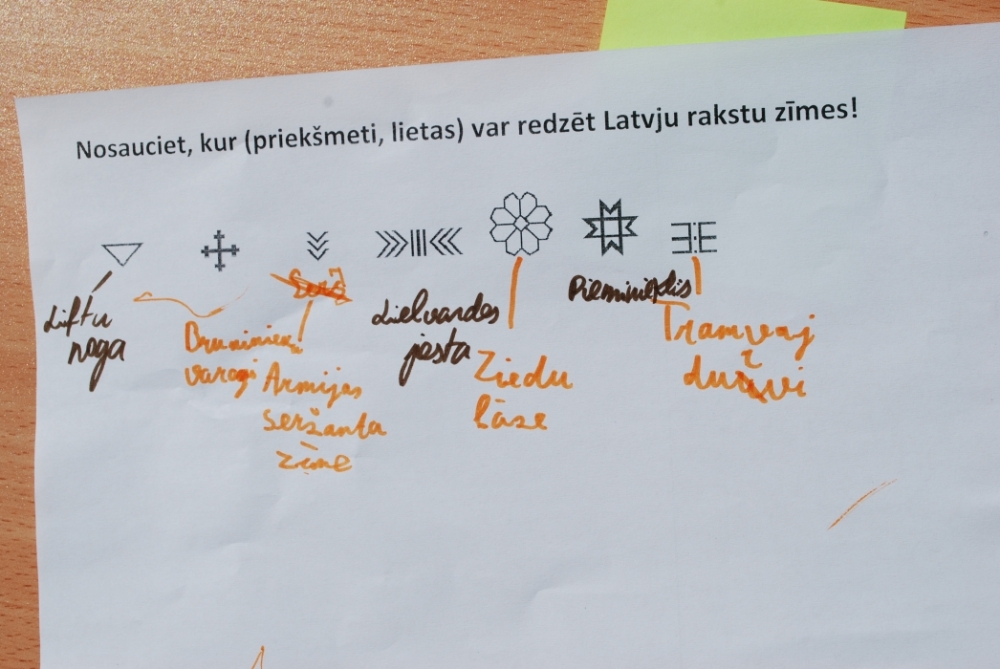 Nosauciet, kur (priekšmeti, lietas) var redzēt Latvju rakstu zīmes!
Liftu
noga
Bruņinieku
varoņi
Serž
Armijas
seržanta
zīme
Lielvardes
josta
Ziedu
lāse
Piemineklis
Tramvaj
durvi